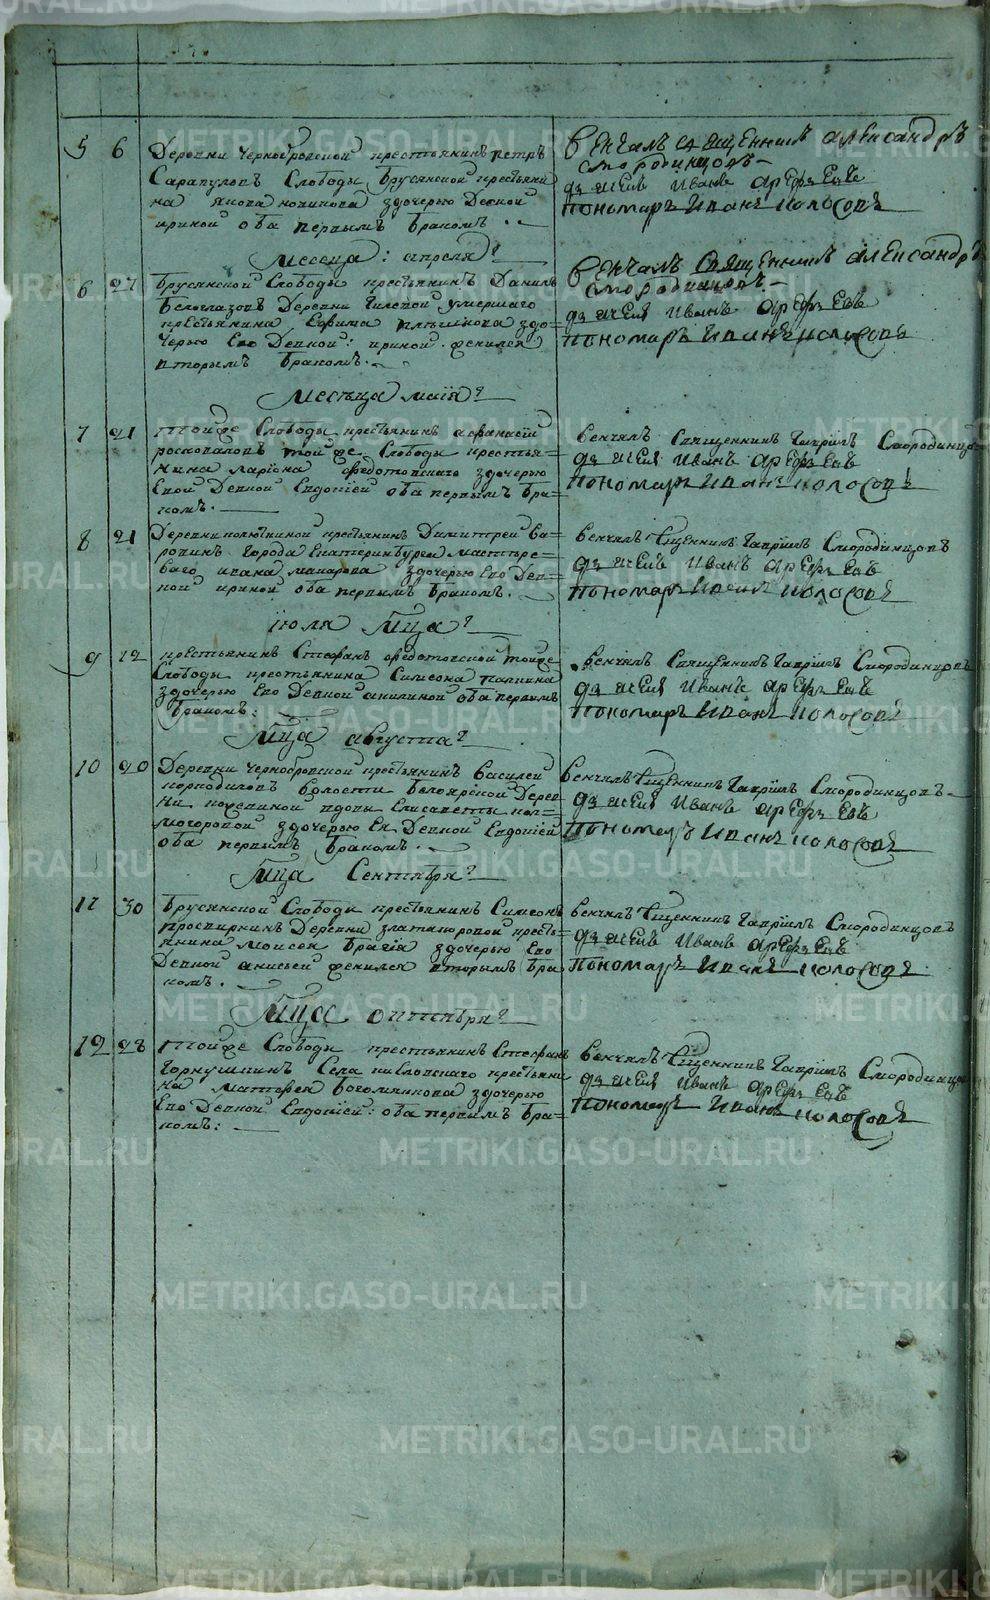 5 6 Деревни Чернобровской крестьянинъ петръ
Сарапуловъ Слободы Брусянской крестьяни
на якова новикова здочерью Девкой
ириной оба первымъ бракомъ.
венчалъ священникъ александръ
смородинцовъ
дьячекъ Иванъ Арефьевъ
пономарь Иванъ колосовъ
Месеца: апреля
6 27 Брусянской Слободы крестьянинъ Данилъ
Белоглазовъ Деревни Гилевой умершаго
крестьянина Ефима плешкова здо=
черью Ево Девкой: ириной. женился
вторымъ бракомъ.
венчалъ Священникъ александръ
смородинцовъ
дьячекъ Иванъ Арефьевъ
пономарь Иванъ колосовъ
Месеца маия
7 21 тойже Слободы крестьянинъ афанасей
росковаловъ той же Слободы крестья=
нина лариона федотовскаго здочерью
Евой Девкой Евдокией оба первымъ бра=
комъ.
венчалъ Священникъ Гаврилъ Смородинцо
дьячекъ Иванъ Арефьевъ
пономарь Иванъ колосовъ
8 21 Деревни крестьянинъ Димитрей Ва=
ровинъ Города Екатеринбурга мастере=
ваго ивана макарова здочерью Ево Дев=
кой ириной оба первымъ бракомъ.
Венчалъ Сщенникъ Гаврилъ Смородинцовъ
дьячекъ Иванъ Арефьевъ
пономарь Иванъ колосовъ
июля Мца
9 12 крестьянинъ Стефанъ федотовской тойже
Слободы крестьянина Симеона папкина
здочерью Ево Девкой акилиной оба первымъ
бракомъ:
Венчалъ Священникъ Гаврилъ Смородинцовъ
дьячекъ Иванъ Арефьевъ
пономарь Иванъ колосовъ
Мца августа
10 20 Деревни Чернобровской крестьянинъ Василей
коркодиловъ волости Белоярской Дерев
ни вдовы Елисаветы кол=
могоровой здочерью Ея Девкой Евдокией
оба первымъ бракомъ.
Венчалъ Сщенникъ Гаврилъ Смородинцовъ
дьячекъ Иванъ Арефьевъ
пономарь Иванъ колосовъ
Мца Сентября
11 30 Брусянской Слободы крестьянинъ Симеонъ
проскурнинъ Деревни златагоровой кресть=
янина Моисея Брагина здочерью Ево
Девкой анисьей женился вторымъ бра
комъ.
Венчалъ Сщенникъ Гаврилъ Смородинцовъ
дьячекъ Иванъ Арефьевъ
пономарь Иванъ колосовъ
Мца октября
12 28 тойже Слободы крестьянинъ Стефанъ
Горнушкинъ Села кисловскаго крестьяни
на матфея Богомякова здочерью
Ево Девкой Евдокией: оба первымъ бра=
комъ:
Венчалъ Сщенникъ Гаврилъ Смородинцо
дьячекъ Иванъ Арефьевъ
пономарь Иванъ колосовъ
METRIKI.GASO-URAL.RU